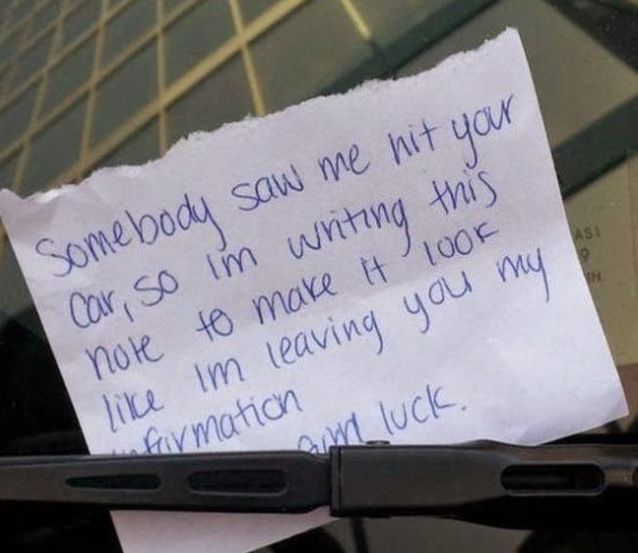 Somebody saw me hit your
car, so im writing this
note to make it look
like im leaving you my
information
luck.
ASI